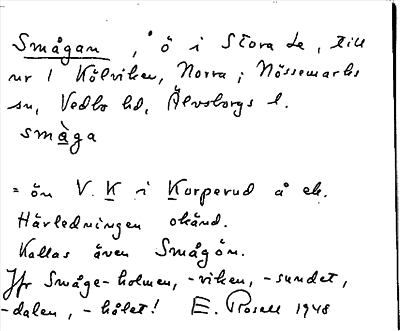 Smågan, ö i Stora Le, till
nr 1 Kölviken, Norra; Nössemarks
sn, Vedbo hd, Älvsborgs l.
smàga
= ön V. K i Korperud å ek.
Härledningen okänd.
Kallas även Smågön.
Jfr Småge-holmen, -viken, -sundet,
-dalen, -hålet! E. Rosell 1948